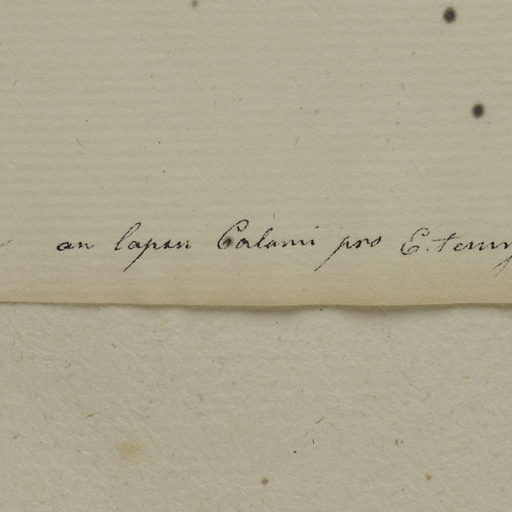 an lapsu Calami pro E. tenuj